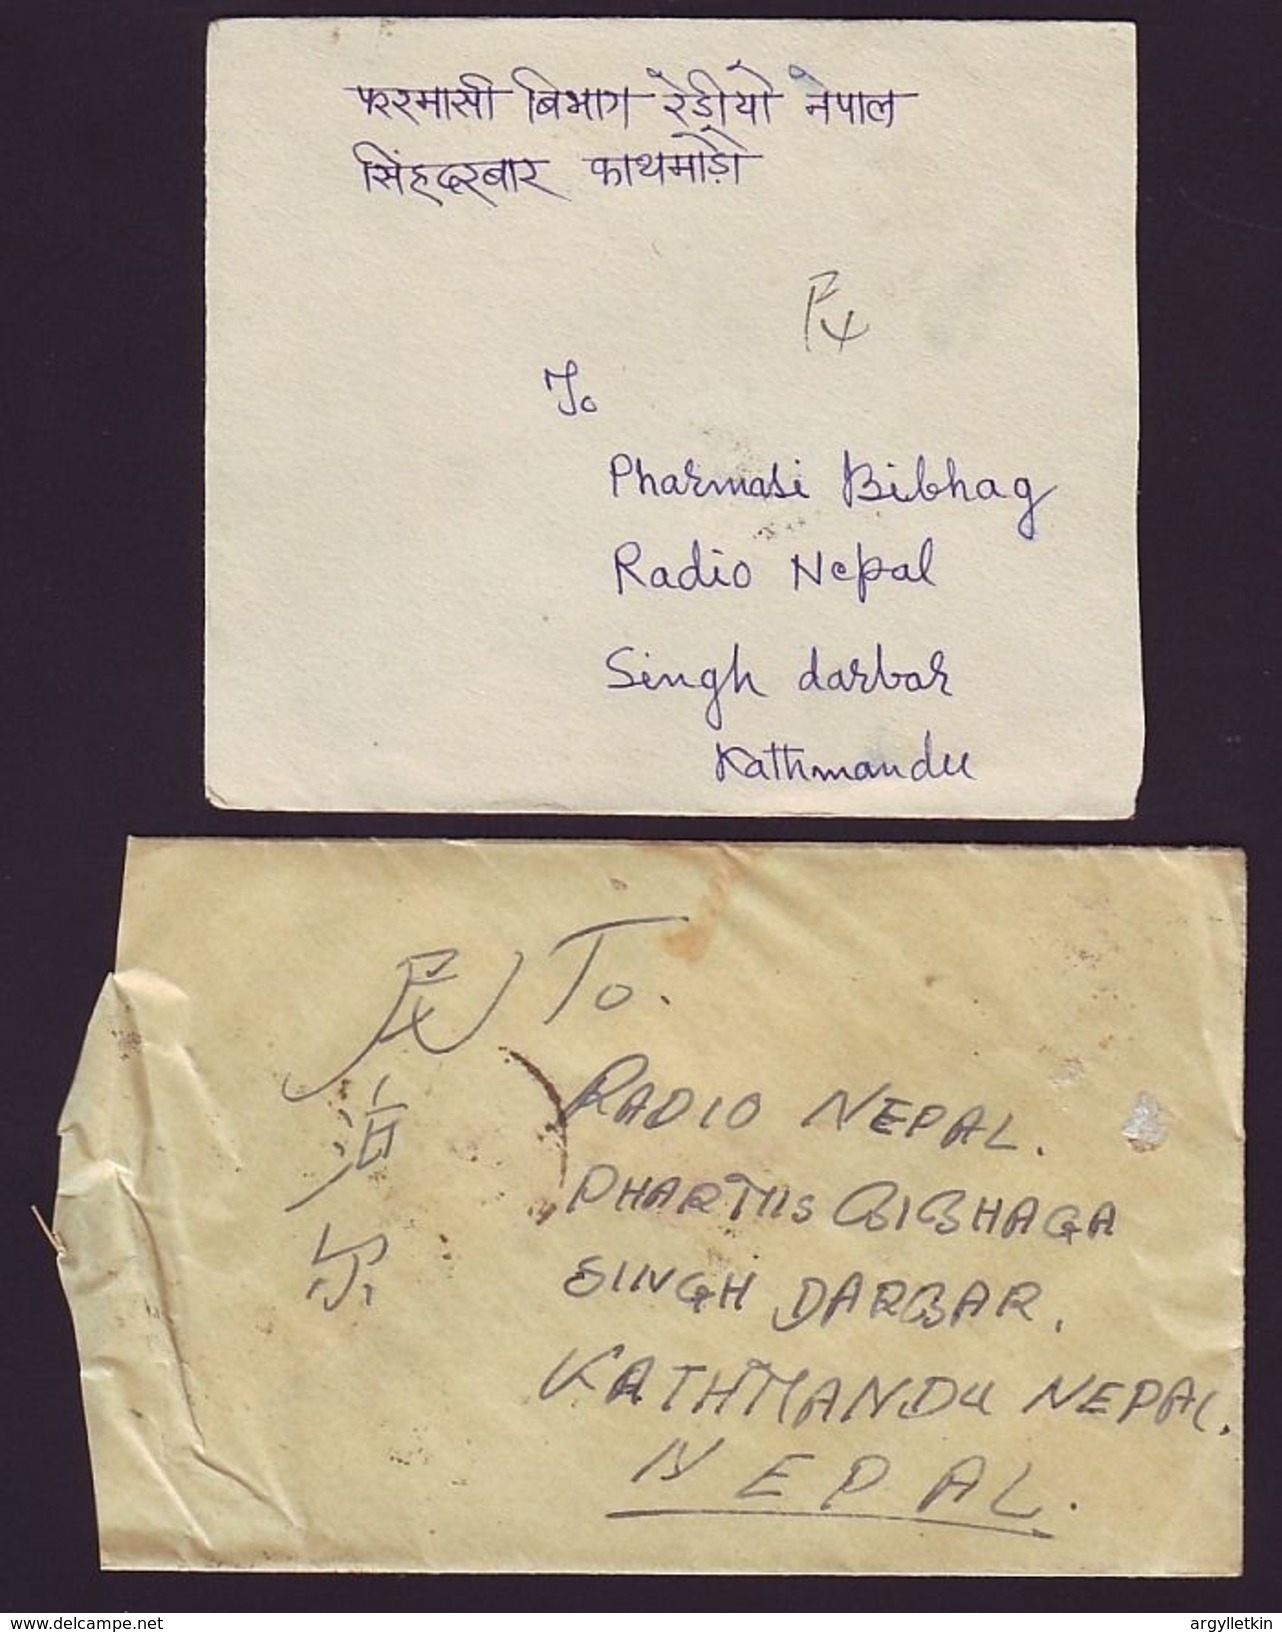 फरमासी बिभाग रेडीयो नेपाल
सिंहदरबार काथमाडौ
To
Pharmasi Bibhag
Radio Nepal
Singh darbar
Kathmandu
To.
RADIO NEPAL.
PHARMIS BIBHAGA
SINGH DARBAR.
KATHMANDU NEPAL.
NEPAL.
delcampe.net
argylletkin